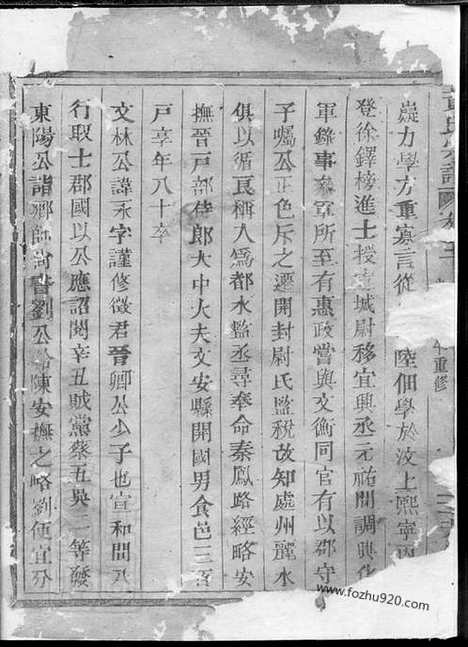 嶷力學方重寡言從陸佃學於汶上熙寧丙
登徐鐸榜進士授宣城尉移宜興丞元祐間調興化
軍錄事參軍所至有惠政嘗與文衡同官有以郡守
子囑公正色斥之遷開封尉氏監稅故知處州麗水
俱以循良稱入為都水監丞尋奉命秦鳳路經略安
撫晉戶部侍郎大中大夫文安縣開國男食邑三百
戶享年八十卒
文林公諱永字謹修徵君晉卿公少子也宣和間以
行取士郡國以公應詔閱辛丑賊黨蔡五吳一等發
東陽公詣鄉師尚書劉公韐陳安撫之略劉便宜分
重修
www.fozhu920.com